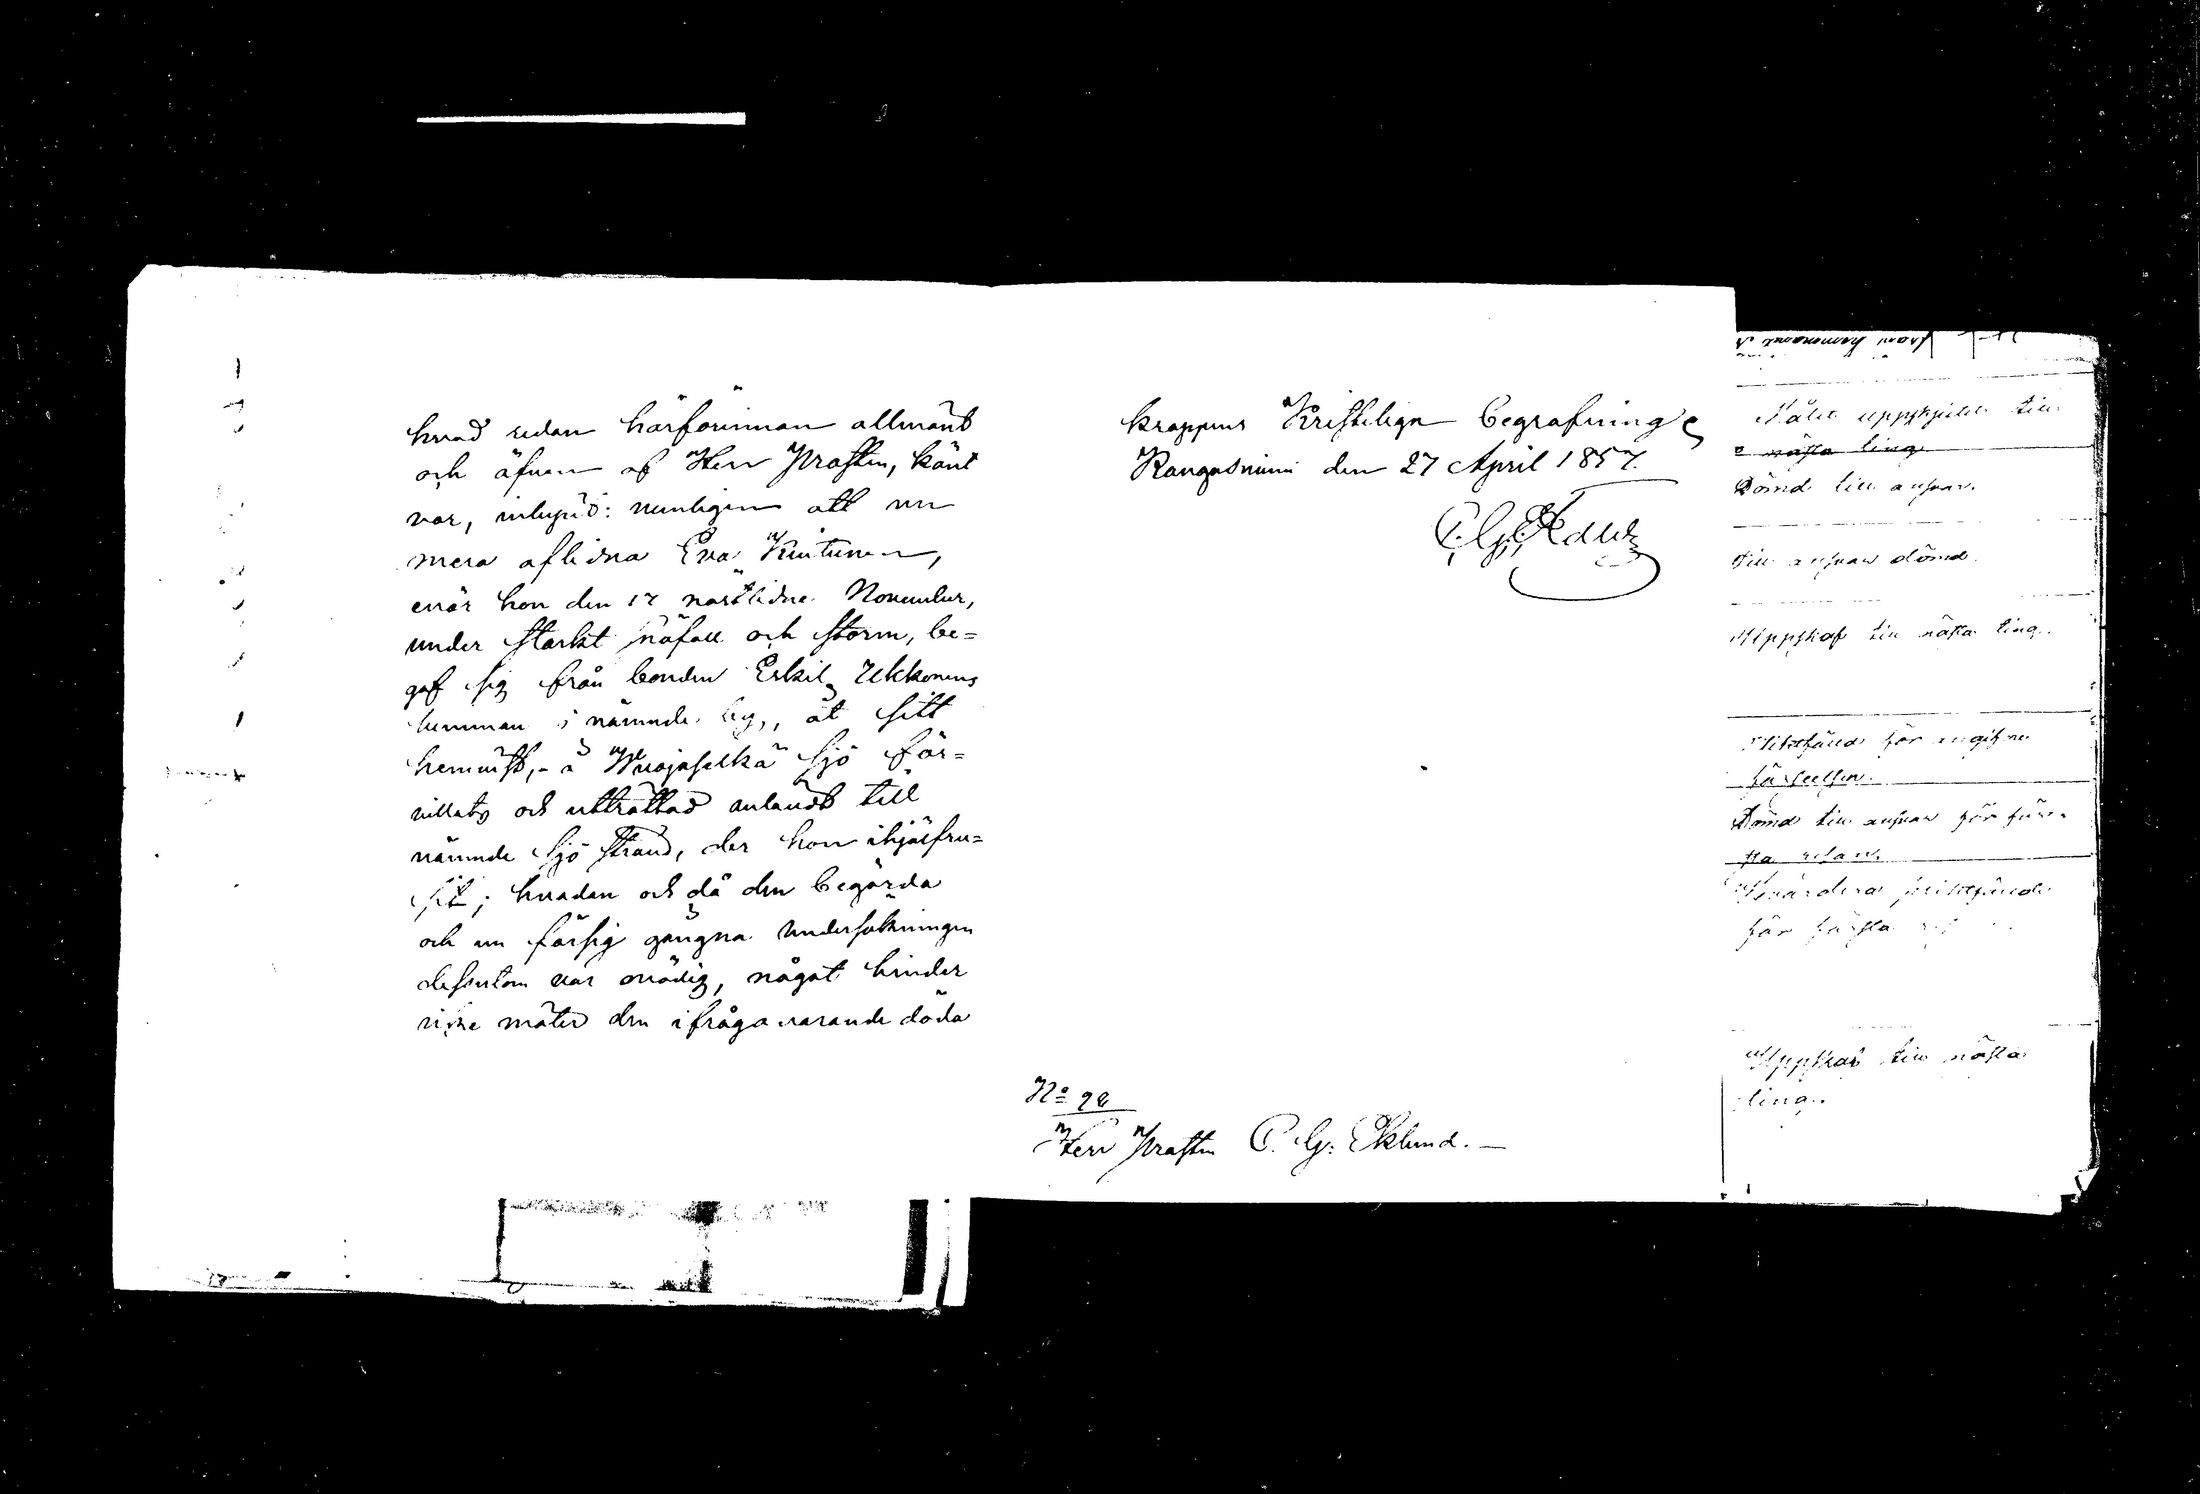 hvad redan härförinnan allmänt
och äfven af Herr Prosten, känt
var, inlupit: nemligen att nu
mera aflidna Eva Kintunen,
enär hon den 17 nästlidne November,
under starkt snöfall och storm, be=
gaf sig från bonden Erkil Ukkonens
hemman i nämnde by, åt sitt
hemvist, å Wuojaselkä sjö för=
villats och uttröttad anländt till
nämnde sjö strand, der hon ihjälfru=
sit; hvadan och då den begärda
och nu försig gångna undersökningen
dessutom var onödig, något hinder
icke möter den ifrågavarande döda
kroppens Kristeliga begrafning
Kangasniemi den 27 April 1857.
No 98
Herr Prosten C. G. Eklund.
Målet uppskjutet till
nästa ting
Dömd till ansvar.
till ansvar dömd.
Uppskof till nästa ting.
för
Dömd till ansvar för förs-
ta resan.
för första
Uppskof till nästa
ting.